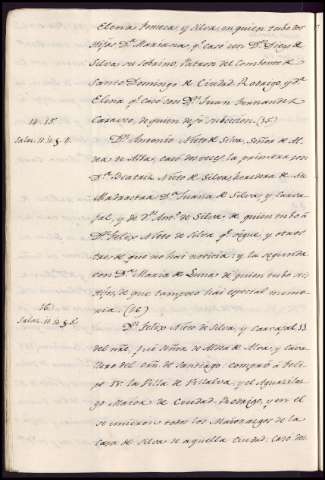 Elena Fonseca y Silva, en quien tubo dos
hijas Dª. Mariana qe. casó con Dn. Diego de
Silva su sobrino, Patron del Combento de
Santo Domingo de Ciudad Rodrigo, y Dª
Elena qe. casó con Dn. Juan Fernandez
Carasco, de quien dejó subcesion. (35)
14. 15.
Salaz. li. 10. § 4.
Dn. Antonio Nieto de Silva, Señor de Al-
dea de Alba, casó dos veces, la primera con
Dª. Beatriz Nieto de Silva, heredera de su
Madrastra Dª. Juana de Silva y Carva-
jal, y de Dn. Anto. de Silva, de quien tubo á
Dn. Felix Nieto de Silva qe. sigue, y otros
de que no hai noticia: y la segunda
con Dª. Maria de Luna de quien tubo
hijos, de que tampoco hai especial memo-
ria. (36)
16.
Salaz. li. 10. § 5.
Dn. Felix Nieto de Silva, y Carvajal
del nãe. fué Señor de Aldea de Alva, y cava-
llero del orñ. de Santiago compró á Feli-
pe IV. la Villa de Villalva, y el Aguacilaz-
go Maior de Ciudad Rodrigo, y en el
se unieron todos los Maiorazgos de la
casa de Silva de aquella ciudad. Casó dos